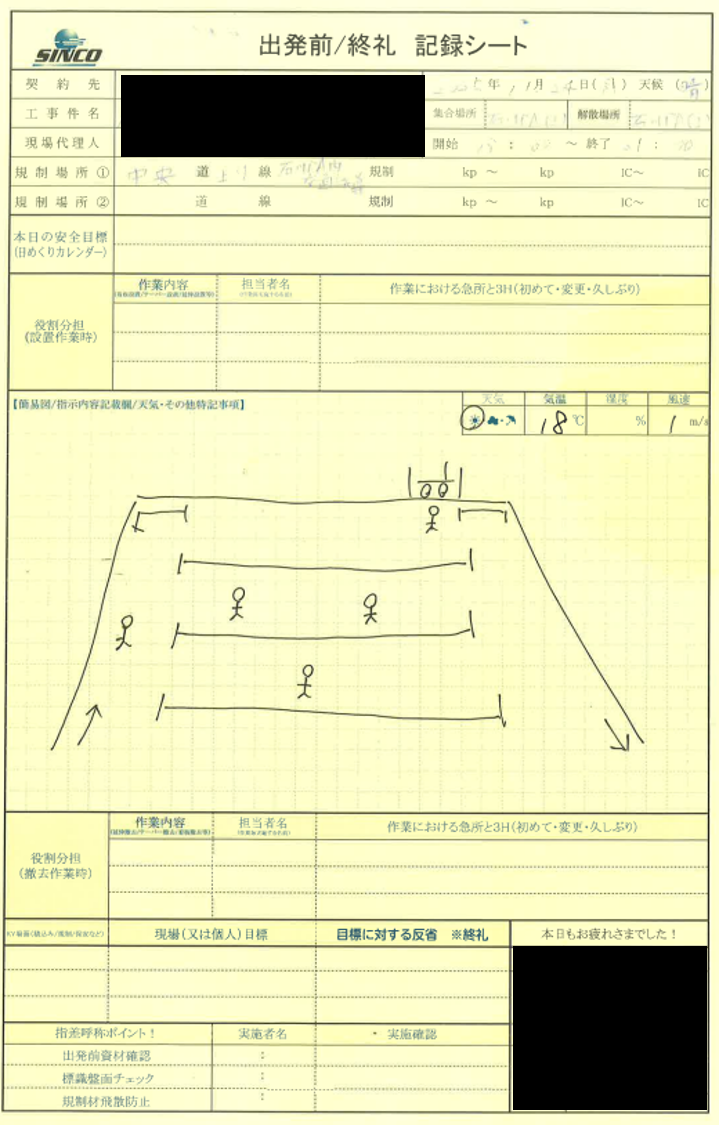 SINCO
出発前/終礼 記録シート
契約先
年 11月 24日( ) 天候 (晴)
工事件名
集合場所
解散場所
現場代理人
開始 : ～ 終了 :
規制場所① 中央 道 上り 線 規制 kp ～ kp IC～ IC
規制場所② 道 線 規制 kp ～ kp IC～ IC
本日の安全目標
(日めくりカレンダー)
役割分担
(設置作業時)
作業内容
担当者名
作業における急所と3H(初めて・変更・久しぶり)
【簡易図/指示内容記載欄/天気・その他特記事項】
天気 気温 湿度 風速
18℃ % 1 m/s
役割分担
(撤去作業時)
作業内容
担当者名
作業における急所と3H(初めて・変更・久しぶり)
現場(又は個人)目標
目標に対する反省 ※終礼
本日もお疲れさまでした！
指差呼称ポイント！
実施者名
・ 実施確認
出発前資材確認 :
標識盤面チェック :
規制材飛散防止 :